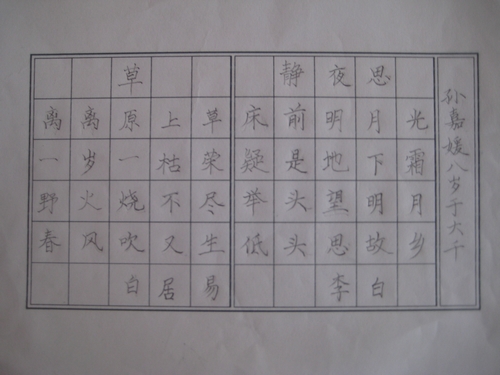 草
离离原上草
一岁一枯荣
野火烧不尽
春风吹又生
白居易
静夜思
床前明月光
疑是地下霜
举头望明月
低头思故乡
李白
孙嘉媛八岁于大千